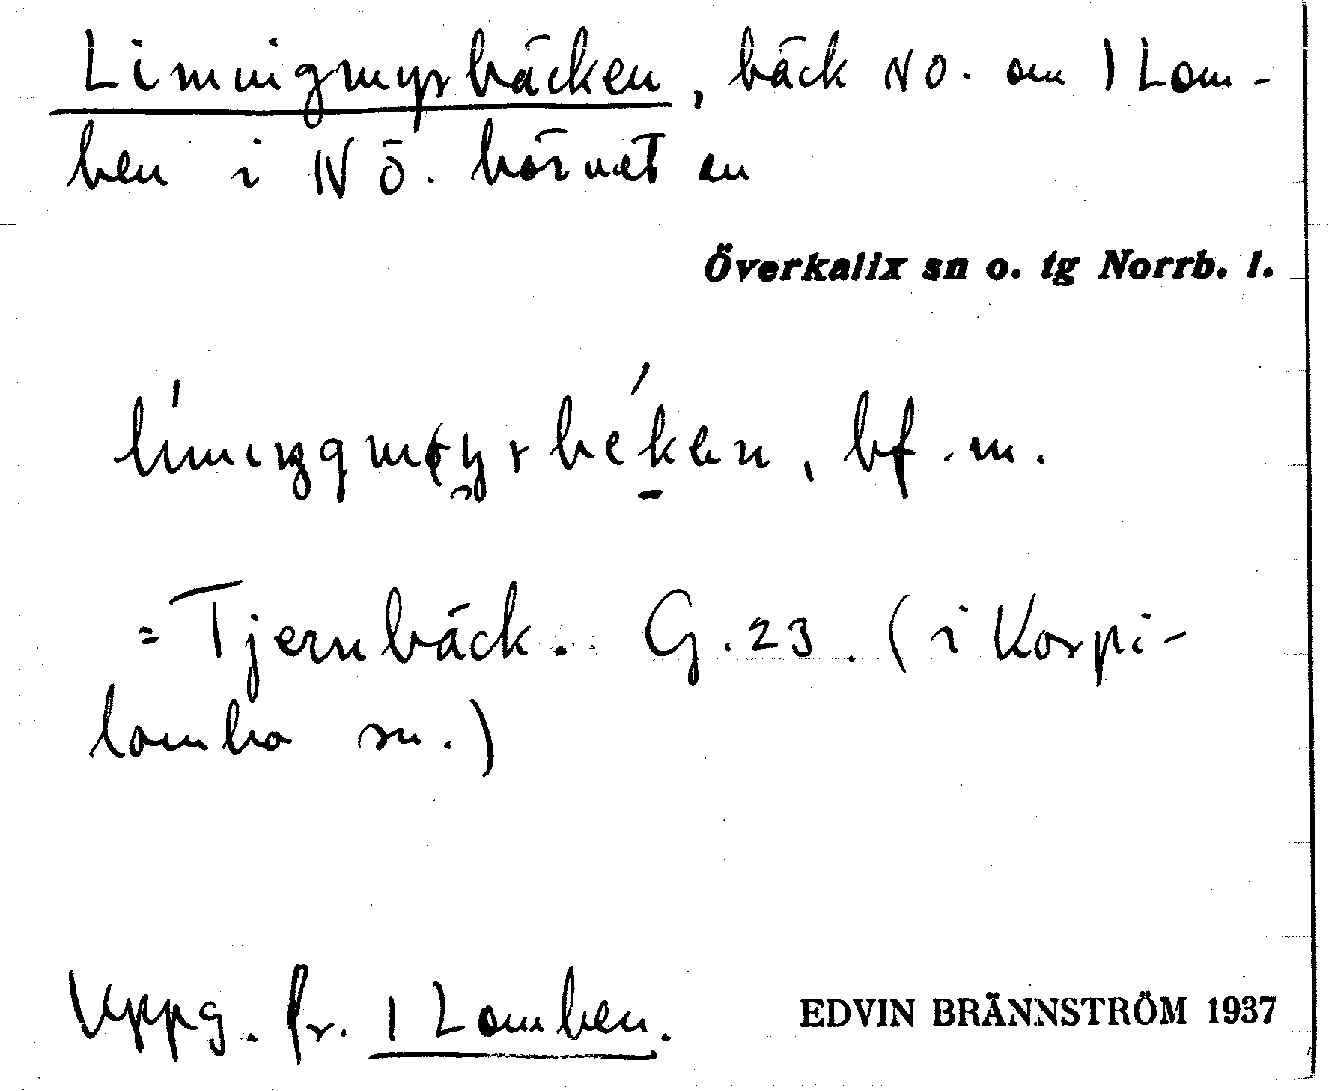 Limnigmyrbäcken, bäck NO. om 1 Lom-
ben i NÖ. hörnet av
Överkalix sn o. tg Norrb. l.
bf. m.
= Tjernbäck. G. 23. (i Korpi-
lombo sn.)
Uppg. fr. 1 Lomben.
EDVIN BRÄNNSTRÖM 1937